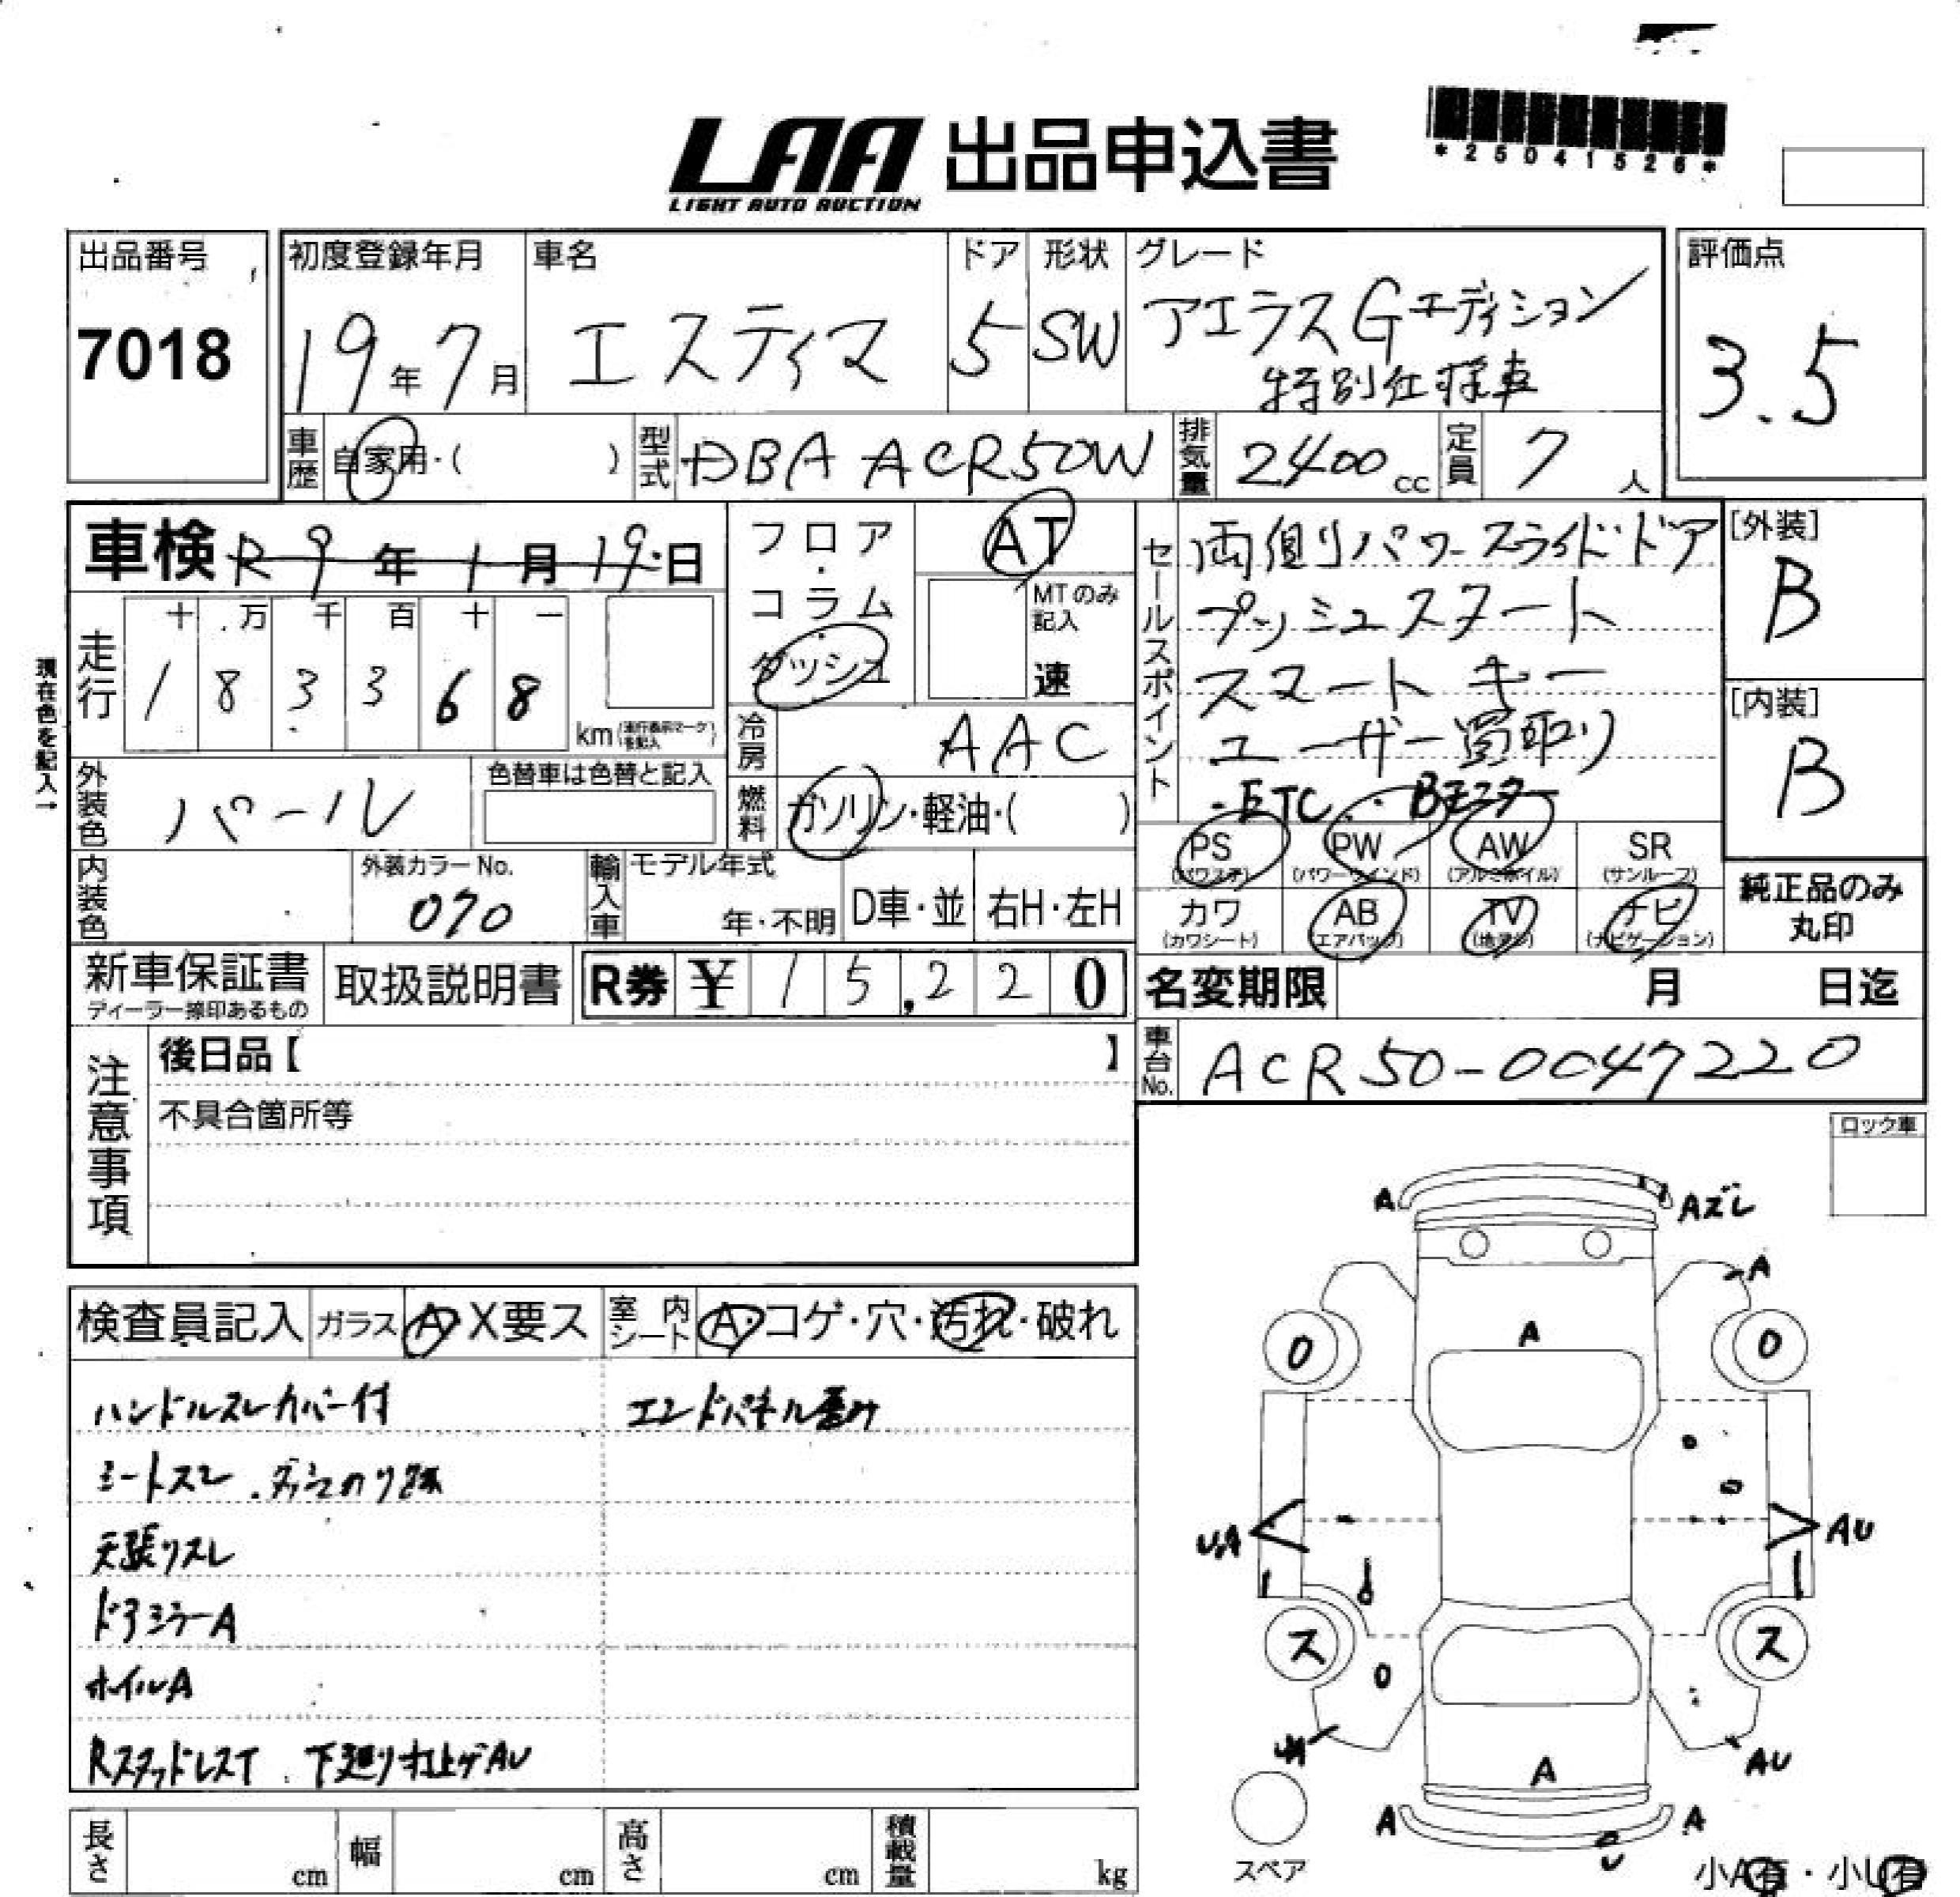 LAA 出品申込書
LIGHT AUTO AUCTION
*25041526*
出品番号
7018
初度登録年月
19年7月
車名
エスティマ
ドア
5
形状
SW
グレード
アエラスGエディション
特別仕様車
評価点
3.5
車歴
自家用・( )
型式
DBA ACR50W
排気量
2400cc
定員
7人
車検 R9年1月19日
フロア・コラム・ダッシュ
AT
MTのみ記入
速
走行
十 万 千 百 十 一
1 8 3 3 6 8
km
現在色を記入→
冷房
AAC
外装色
パール
色替車は色替と記入
燃料
ガソリン・軽油・( )
内装色
外装カラーNo.
070
輸入車
モデル年式
年・不明
D車・並
右H・左H
セールスポイント
両側りパワースライドドア
プッシュスタート
スマートキー
ユーザー買取り
・ETC・Bモニター
[外装]
B
[内装]
B
PS (パワステ)
PW (パワーウインド)
AW (アルミホイル)
SR (サンルーフ)
カワ (カワシート)
AB (エアバック)
TV (地デジ)
ナビ (ナビゲーション)
純正品のみ丸印
新車保証書
ディーラー捺印あるもの
取扱説明書
R券 ¥ 15,220
名変期限 月 日迄
車台No.
ACR50-0047220
注意事項
後日品【 】
不具合箇所等
ロック車
検査員記入
ガラス A・X要ス
室内シート A・コゲ・穴・汚れ・破れ
ハンドルスレカバー付
エンドパネル歪み
シートスレ
天張りスレ
ドアミラーA
ホイルA
RスタッドレスT 下廻り サビ AU
A
Aズレ
A
A
0
0
UA
AU
ス
ス
UA
AU
A
A
A
U
スペア
小A有・小U有
長さ cm
幅 cm
高さ cm
積載量 kg